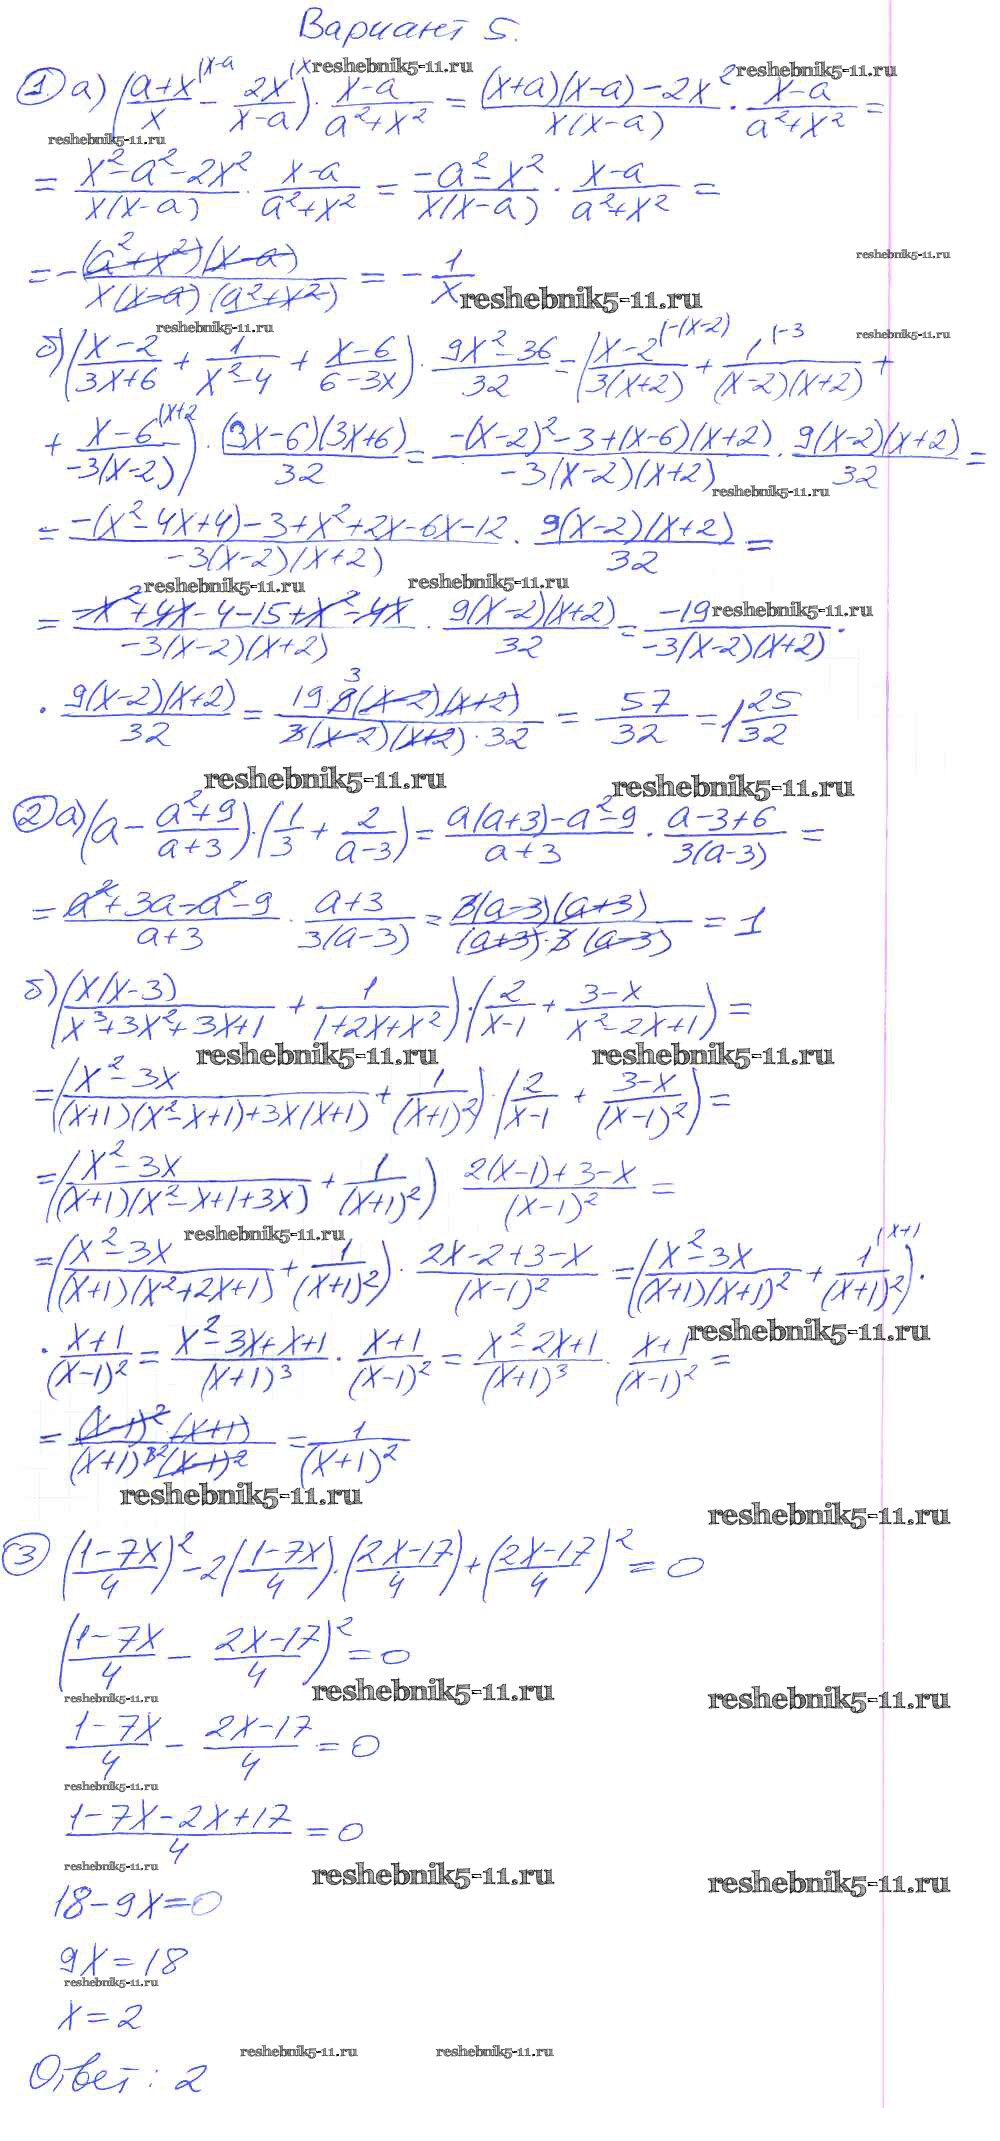 Вариант 5.
① а) ((a+x)/x^(x-a − 2x/(x-a)^(x) · (x-a)/(a²+x²) = ((x+a)(x-a)-2x²)/(x(x-a)) · (x-a)/(a²+x²) =
= (x²-a²-2x²)/(x(x-a)) · (x-a)/(a²+x²) = (-a²-x²)/(x(x-a)) · (x-a)/(a²+x²) =
= -((a²+x²)(x-a))/(x(x-a)(a²+x²)) = -1/x
б) ((x-2)/(3x+6) + 1/(x²-4) + (x-6)/(6-3x)) · (9x²-36)/32 = ((x-2)/(3(x+2))^(-(x-2) + 1/((x-2)(x+2))^(-3 +
+ (x-6)/(-3(x-2))^(x+2) · ((3x-6)(3x+6))/32 = (-(x-2)²-3+(x-6)(x+2))/(-3(x-2)(x+2)) · (9(x-2)(x+2))/32 =
= (-(x²-4x+4)-3+x²+2x-6x-12)/(-3(x-2)(x+2)) · (9(x-2)(x+2))/32 =
= (-x²+4x-4-15+x²-4x)/(-3(x-2)(x+2)) · (9(x-2)(x+2))/32 = -19/(-3(x-2)(x+2)) ·
· (9(x-2)(x+2))/32 = (19·9³(x-2)(x+2))/(3(x-2)(x+2)·32) = 57/32 = 1 25/32
② а) (a - (a²+9)/(a+3)) · (1/3 + 2/(a-3)) = (a(a+3)-a²-9)/(a+3) · (a-3+6)/(3(a-3)) =
= (a²+3a-a²-9)/(a+3) · (a+3)/(3(a-3)) = (3(a-3)(a+3))/((a+3)·3(a-3)) = 1
б) ((x(x-3))/(x³+3x²+3x+1) + 1/(1+2x+x²)) · (2/(x-1) + (3-x)/(x²-2x+1)) =
= ((x²-3x)/((x+1)(x²-x+1)+3x(x+1)) + 1/(x+1)²) · (2/(x-1) + (3-x)/(x-1)²) =
= ((x²-3x)/((x+1)(x²-x+1+3x)) + 1/(x+1)²) (2(x-1)+3-x)/(x-1)² =
= ((x²-3x)/((x+1)(x²+2x+1)) + 1/(x+1)²) · (2x-2+3-x)/(x-1)² = ((x²-3x)/((x+1)(x+1)²) + 1/(x+1)²^(x+1) ·
· (x+1)/(x-1)² = (x²-3x+x+1)/(x+1)³ · (x+1)/(x-1)² = (x²-2x+1)/(x+1)³ · (x+1)/(x-1)² =
= ((x-1)²·(x+1))/((x+1)³²(x-1)²) = 1/(x+1)²
③ ((1-7x)/4)² - 2((1-7x)/4)·((2x-17)/4) + ((2x-17)/4)² = 0
((1-7x)/4 - (2x-17)/4)² = 0
(1-7x)/4 - (2x-17)/4 = 0
(1-7x-2x+17)/4 = 0
18-9x=0
9x=18
x=2
Ответ: 2
reshebnik5-11.ru